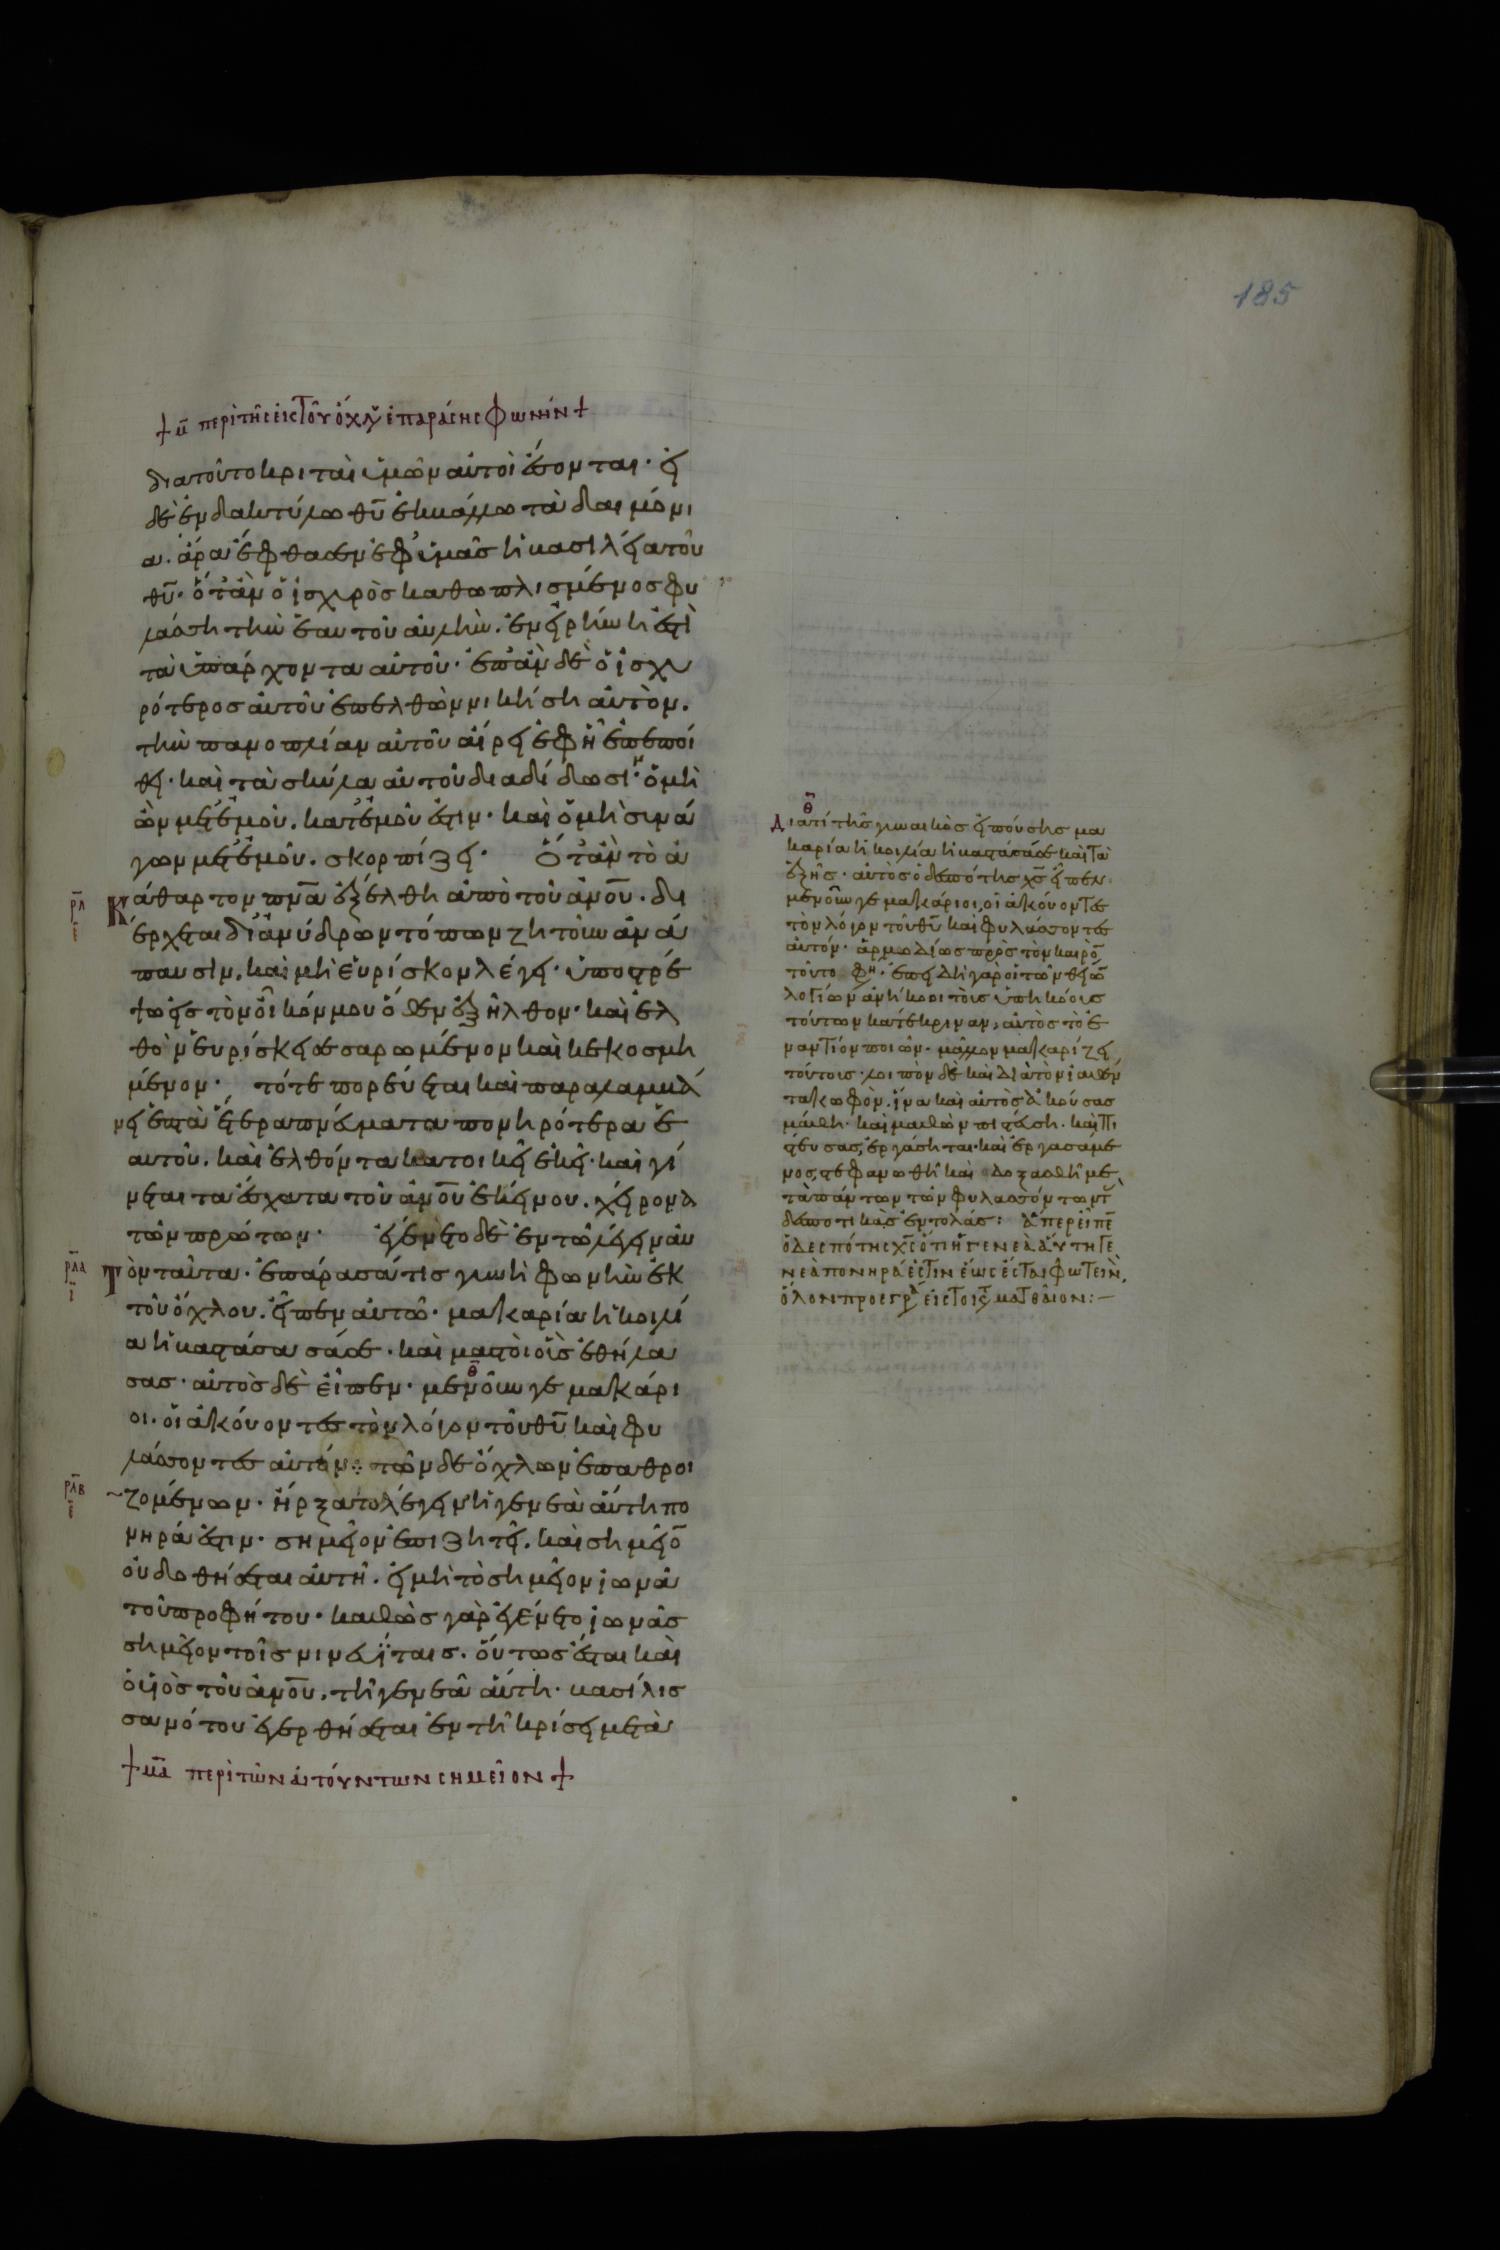 185
+ μ̄ περὶ τῆς ἐκ τοῦ ὄχλου ἐπαράσης φωνὴν +
διατοῦτο κριταὶ ὑμῶν αὐτοὶ ἔσονται· εἰ
δὲ ἐν δακτύλω θ̄ῡ ἐκβάλλω τὰ δαιμόνι
α· ἄρα ἔφθασεν ἐφ' ὑμᾶς ἡ βασιλεία τοῦ
θ̄ῡ· ὅτὰν ὁ ἰσχυρὸς καθωπλισμένος φυ
λάσση τὴν ἑαυτοῦ αὐλὴν. ἐν εἰρήνη ἐστὶ
τὰ ὑπάρχοντα αὐτοῦ· ἐπὰν δὲ ὁ ἰσχυ
ρότερος αὐτοῦ ἐπελθὼν νικήση αὐτὸν.
τὴν πανοπλίαν αὐτοῦ αἴρει ἐφ ἧ ἐπεποί
θει· καὶ τὰ σκῦλα αὐτοῦ διαδίδωσιν· ὁ μὴ
ὢν μετ' ἐμοῦ. κατ' ἐμοῦ ἐστιν· καὶ ὁ μὴ συνά
γων μετ' ἐμοῦ. σκορπίζει· Ὅτὰν τὸ ἀ
κάθαρτον πν̄ᾱ ἐξέλθη ἀπὸ τοῦ ἀν̄ο̄ῡ. δι
έρχεται δι' ἀνύδρων τόπων ζητοῦν ἀνά
παυσιν. καὶ μὴ εὑρίσκον λέγει· ὑποστρέ
ψω εἰς τὸν οἶκόν μου ὅθεν ἐξῆλθον· καὶ ἐλ
θὸν εὑρίσκει σεσαρωμένον καὶ κεκοσμη
μένον· τότε πορεύεται καὶ παραλαμβά
νει ἑπτὰ ἕτερα πνεύματα πονηρότερα ἑ
αυτοῦ. καὶ ἐλθόντα κατοικεῖ ἐκεῖ· καὶ γί
νεται τὰ ἔσχατα τοῦ ἀν̄ο̄ῡ ἐκείνου. χείρονα
τῶν πρώτων· ἐγένετο δὲ ἐν τῶ λέγειν αὐ
τὸν ταῦτα· ἐπάρασά τις γυνὴ φωνὴν ἐκ
τοῦ ὄχλου. εἶπεν αὐτῶ· μακαρία ἡ κοιλί
α ἡ βαστάσασά σε· καὶ μαστοὶ οἷς ἐθήλα
σας· αὐτὸς δὲ εἶπεν· μενοῦν γε μακάρι
οι. οἱ ἀκούοντες τὸν λόγον τοῦ θ̄ῡ καὶ φυ
λάσσοντες αὐτόν· τῶν δὲ ὄχλων ἐπαθροι
ζομένων· ἤρξατο λέγειν ἡ γενεὰ αὕτη πο
νηρά ἐστιν· σημεῖον ἐπιζητεῖ. καὶ σημεῖο̄
οὐ δοθήσεται αὐτῆ. εἰ μὴ τὸ σημεῖον ἰωνᾶ
τοῦ προφήτου· καθὼς γὰρ ἐγένετο ἰωνᾶς
σημεῖον τοῖς νινευΐταις. οὕτως ἔσται καὶ
ὁ υἱὸς τοῦ ἀν̄ο̄ῡ. τῆ γενεᾶ αὕτη· βασίλισ
σα νότου ἐγερθήσεται ἐν τῆ κρίσει μετὰ
+ μ̄ᾱ περὶ τῶν αἰτούντων σημεῖον +
ρ̄λ̄
ε̄
ρ̄λ̄ᾱ
ῑ
ρ̄λ̄β̄
ε̄
θ̄
Διατί τῆς γυναικὸς εἰπούσης μα
καρία ἡ κοιλία ἡ βαστάσασά σε καὶ τὰ
ἑξῆς· αὐτὸς ὁ δεσπότης χ̄ς̄ εἶπεν·
μενοῦν γε μακάριοι, οἱ ἀκούοντες
τὸν λόγον τοῦ θ̄ῡ καὶ φυλάσσοντες
αὐτόν· ἁρμωδίως πρὸς τὸν καιρὸ̄
τοῦτο φη· ἐπειδὴ γὰρ οἱ τῶν θείω̄
λογίων ἀνήκοοι τοῖς ὑπηκόοις
τούτων κατέκριναν, αὐτὸς τὸ ἐ
ναντίον ποιῶν· μᾶλλον μακαρίζει
τούτοις· λοιπὸν δὲ καὶ διὰ τὸν ἰαθέν
τα κωφὸν. ἵνα καὶ αὐτὸς ἀκούσας
μάθη· καὶ μαθὼν πιστεύση. καὶ πι
στεύσας, ἐργάσηται· καὶ ἐργασάμε
νος, στεφανωθῆ καὶ δοξασθῆ με
τὰ πάντων τῶν φυλασσόντων τ̀
δεσποτικὰς ἐντολάς: ἅπερ εἶπε̄
ὁ δεσπότης χ̄ς̄ ὅτι ἡ γενεὰ αὕτη γε
νεὰ πονηρά ἐστιν ἕως ἔσται φωτεινὸν,
ὅλον προεγρ̀ εἰς τὸ κτ̀ ματθαῖον:—